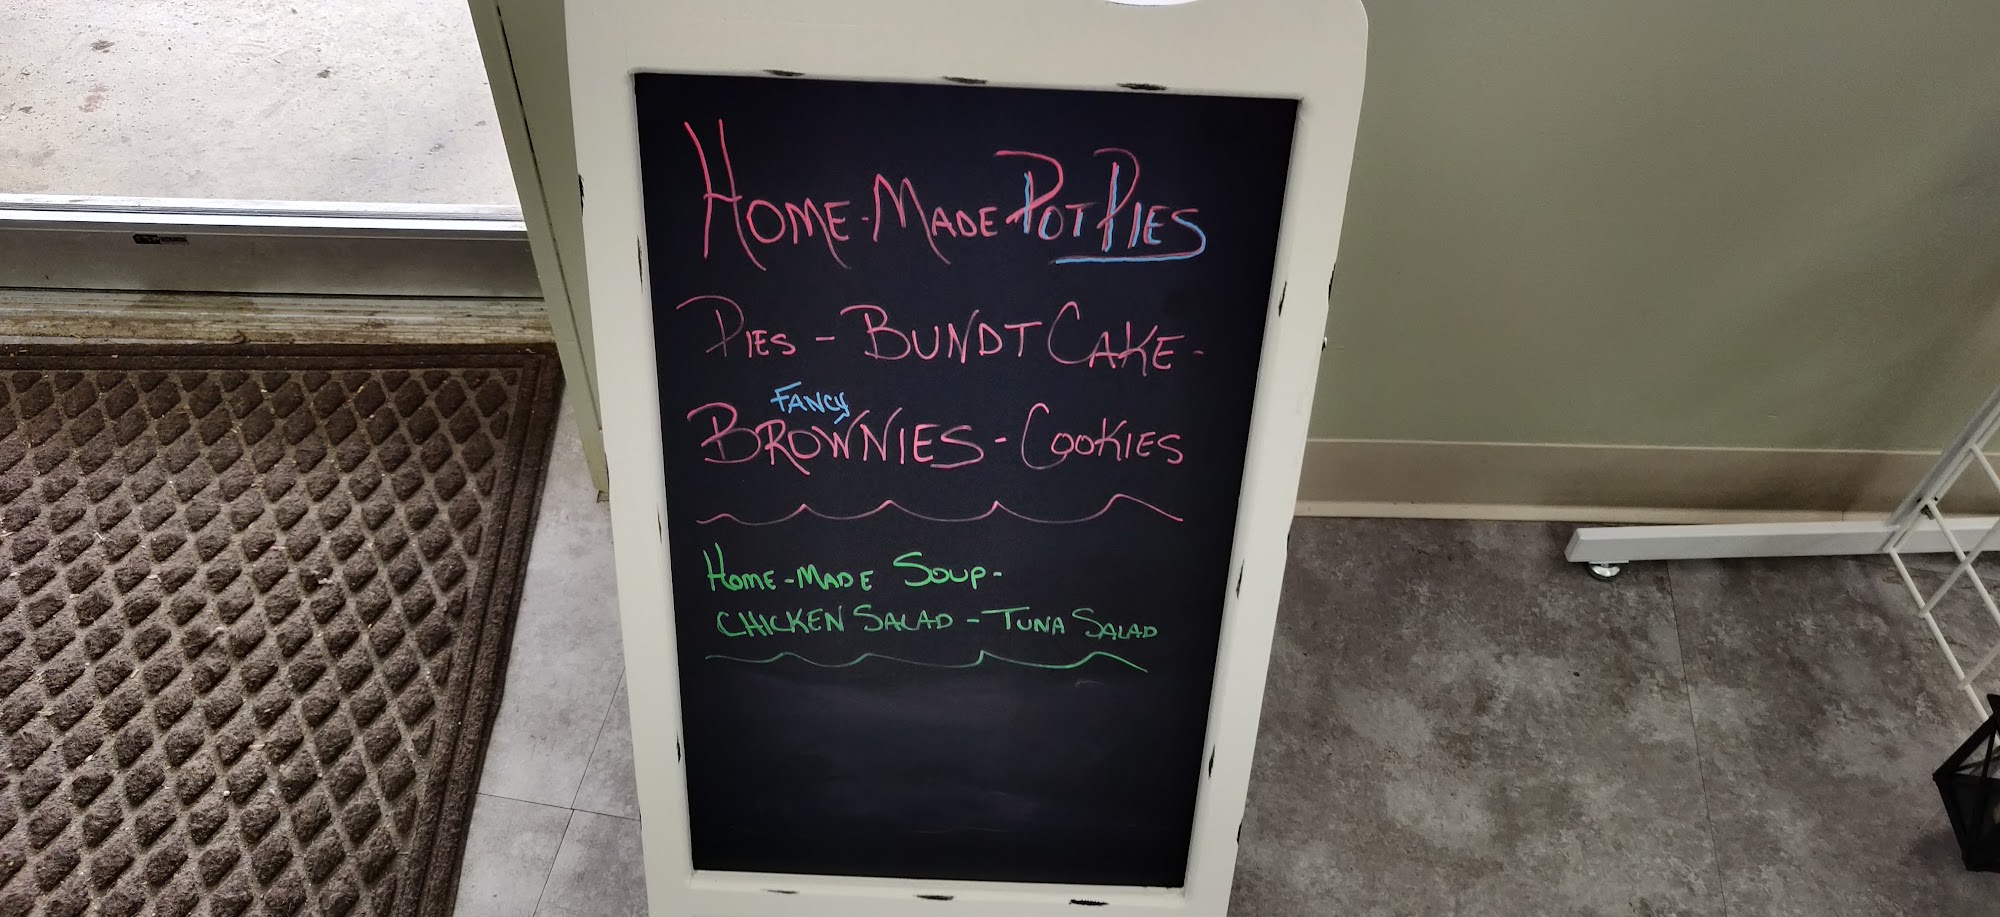 HOME-MADE POT PIES
PIES - BUNDT CAKE -
FANCY
BROWNIES - COOKIES
HOME-MADE SOUP-
CHICKEN SALAD - TUNA SALAD